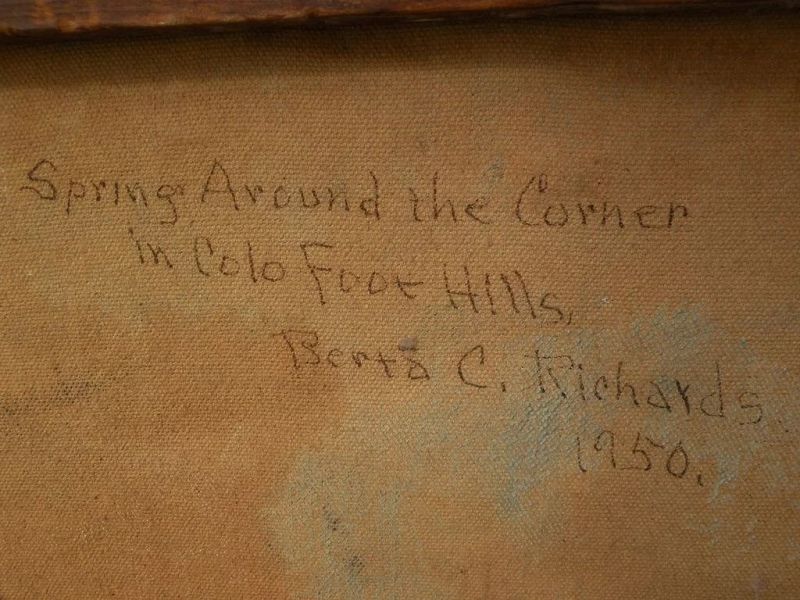 Spring Around the Corner
in Colo Foot Hills,
Berta C. Richards
1950.